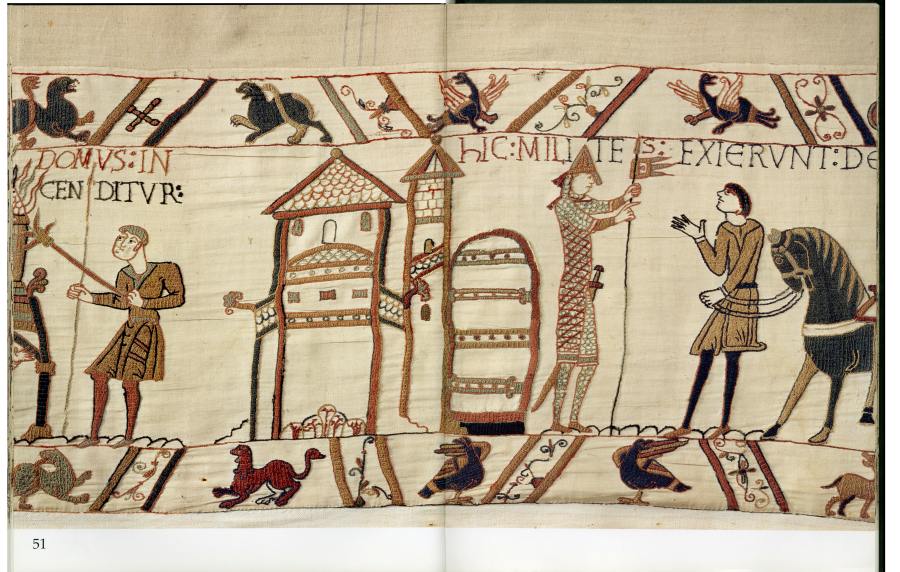 DOMVS: IN
CENDITVR:
HIC: MILITES: EXIERVNT: DE
51